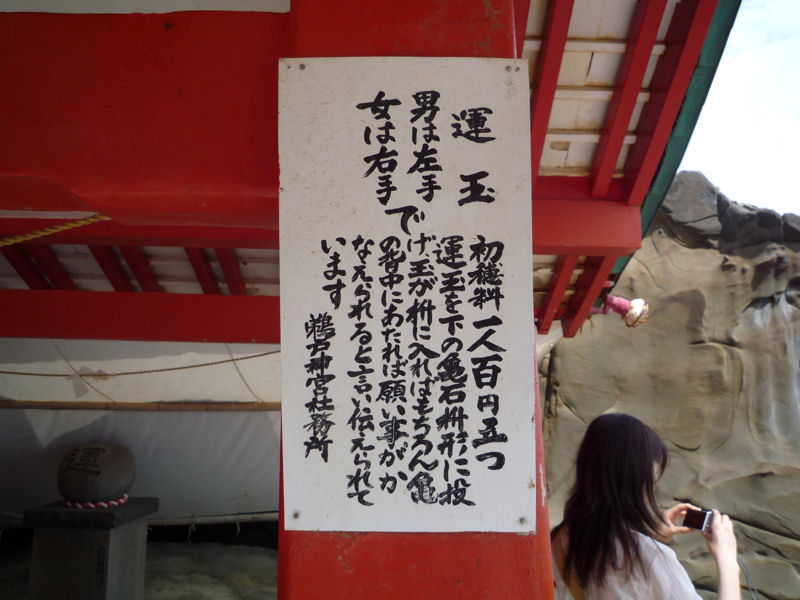 運玉
初穂料一人百円五つ
男は左手
女は右手
で
運玉を下の亀石枡形に投
げ玉が枡に入ればもちろん亀
の背中にあたれば願い事がか
なえられると言い伝えられて
います
鵜戸神宮社務所
運